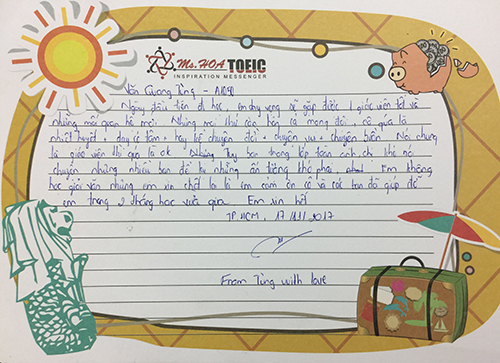 Ms. HOA TOEIC
INSPIRATION MESSENGER
Văn Quang Tùng - A1090
Ngày đầu tiên đi học, em hy vọng sẽ gặp được 1 giáo viên tốt và
những mối quan hệ mới. Những mọi thứ còn hơn cả mong đợi, cô giáo là
nhiệt huyết + dạy có tâm + hay kể chuyện đời + chuyện vui + chuyện biển. Nói chung
là giáo viên thì giờ là ok. Những thay bạn trong lớp toàn anh, chị khá nó
chuyện nhưng nhiều bạn để lại những ấn tượng khó phai. Em không
học giỏi văn nhưng em xin chốt lại là em cảm ơn cô và các bạn đã giúp đỡ
em trong 2 tháng học vừa qua. Em xin hết
TP HCM, 17/11/2017
From Tùng with love